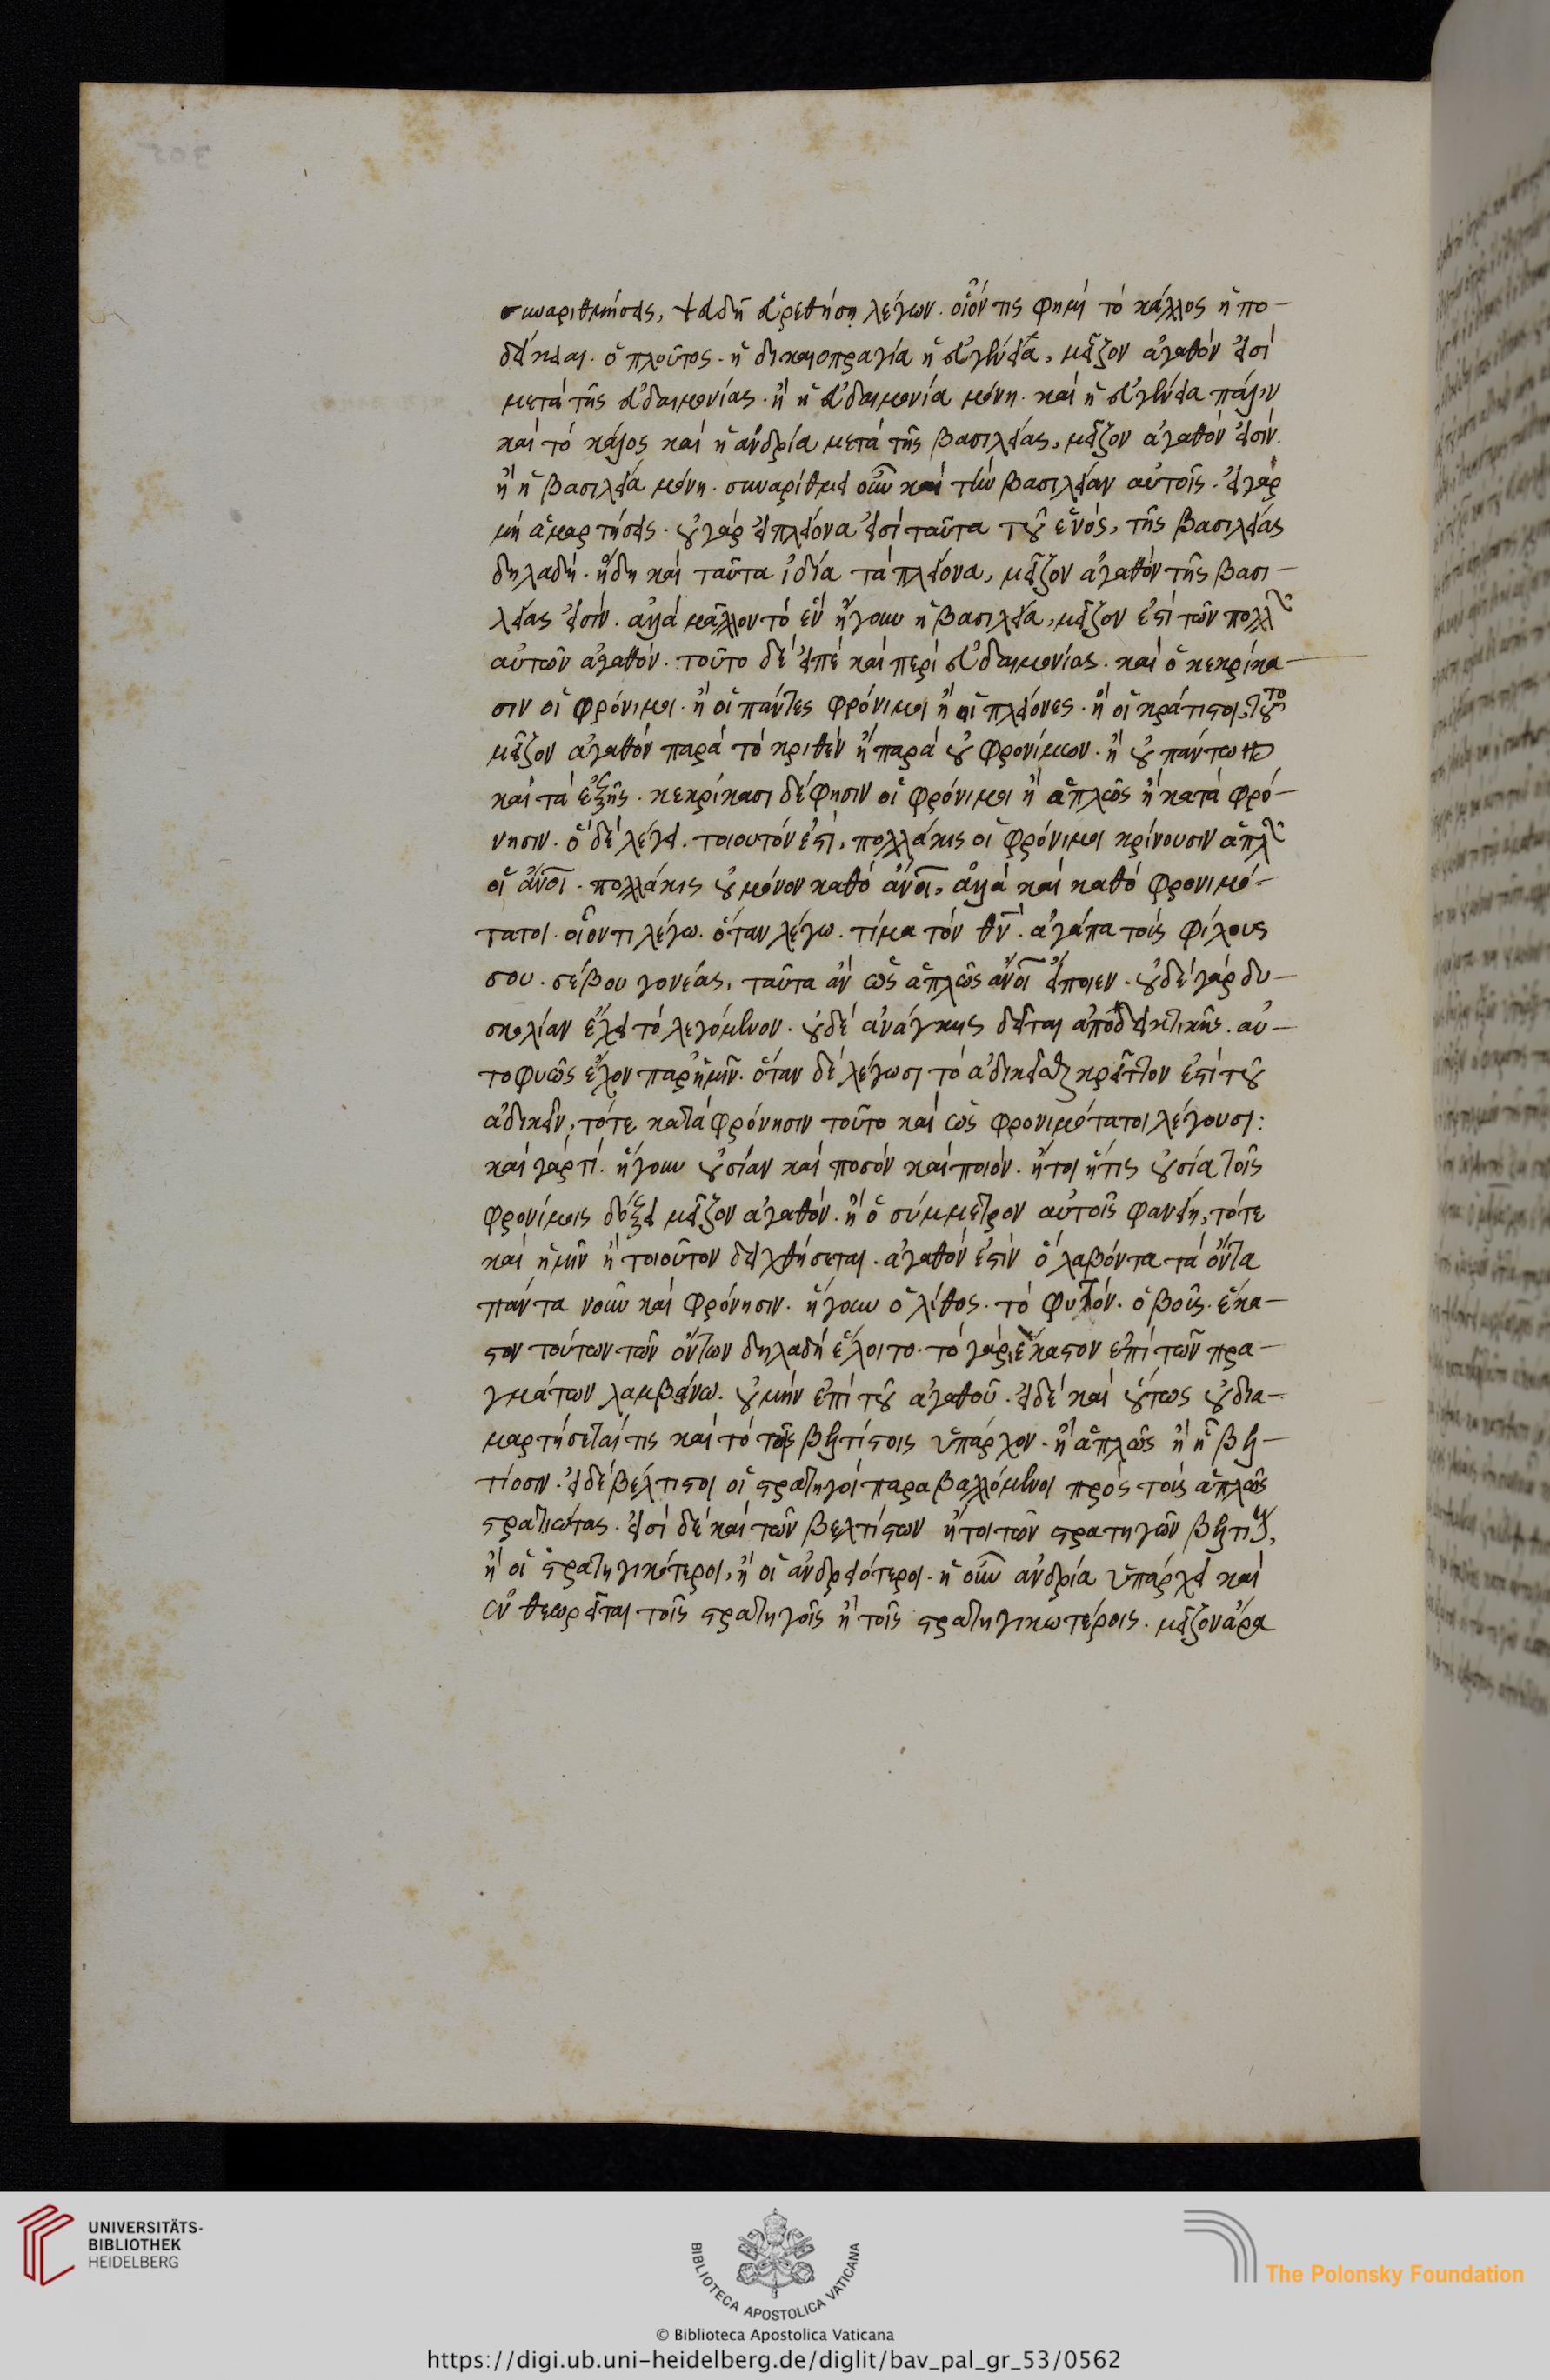 συναριθμήσεις, ψευδῆ εὑρεθήσῃ λέγων. οἷόν τις φημὶ τὸ κάλλος ἢ πο-
δείκεια. ὁ πλοῦτος. ἡ δικαιοπραγία ἡ εὐγένεια, μεῖζον ἀγαθόν εἰσι
μετὰ τῆς εὐδαιμονίας. ἢ ἡ εὐδαιμονία μόνη. καὶ ἡ εὐγένεια πάλιν
καὶ τὸ κάλλος καὶ ἡ ἀνδρία μετὰ τῆς βασιλείας, μεῖζον ἀγαθόν εἰσιν.
ἢ ἡ βασιλεία μόνη. συναρίθμει οὖν καὶ τὴν βασιλείαν αὐτοῖς. εἰ γὰρ
μὴ ἁμαρτήσεις. οὐ γὰρ εἰ πλείονά εἰσι ταῦτα τοῦ ἑνός, τῆς βασιλείας
δηλαδή. ἤδη καὶ ταῦτα ἰδία τὰ πλείονα, μεῖζον ἀγαθὸν τῆς βασι-
λείας εἰσίν. ἀλλὰ μᾶλλον τὸ ἓν ἤγουν ἡ βασιλεία, μεῖζον ἐστὶ τῶν πολλῶν
αὐτῶν ἀγαθόν. τοῦτο δὲ εἰπὲ καὶ περὶ εὐδαιμονίας. καὶ ὃ κεκρίκα-
σιν οἱ φρόνιμοι. ἢ οἱ πάντες φρόνιμοι ἢ οἱ πλείονες. ἢ οἱ κράτιστοι, τοῦτο
μεῖζον ἀγαθὸν παρὰ τὸ κριθὲν ἢ παρὰ οὐ φρονίμων. ἢ οὐ πάντων
καὶ τὰ ἑξῆς. κεκρίκασι δέ φησιν οἱ φρόνιμοι ἢ ἁπλῶς ἢ κατὰ φρό-
νησιν. ὃ δὲ λέγει. τοιουτόν ἐστι, πολλάκις οἱ φρόνιμοι κρίνουσιν ἁπλῶς
οἱ ἄνοι. πολλάκις οὐ μόνον καθὸ ἄνοι, ἀλλὰ καὶ καθὸ φρονιμό-
τατοι. οἷον τι λέγω. ὅταν λέγω. τίμα τὸν θν. ἀγάπα τοὺς φίλους
σου. σέβου γονέας, ταῦτα ἂν ὡς ἁπλῶς ἄνοι εἴποιεν. οὐδὲ γὰρ δυ-
σκολίαν ἔχει τὸ λεγόμενον. οὐδὲ ἀνάγκης δεῖται ἀποδεικτικῆς. αὐ-
τοφυῶς ἔχον παρ' ἡμῖν. ὅταν δὲ λέγωσι τὸ ἀδικεῖσθαι κρεῖττον ἐστὶ τοῦ
ἀδικεῖν, τότε κατὰ φρόνησιν τοῦτο καὶ ὡς φρονιμότατοι λέγουσι:
καὶ γάρ τι. ἤγουν οὐσίαν καὶ ποσὸν καὶ ποιόν. ἤτοι ἥτις οὐσία τοῖς
φρονίμοις δόξει μεῖζον ἀγαθόν. ἢ ὃ σύμμετρον αὐτοῖς φανείη, τότε
καὶ ἡμῖν ἢ τοιοῦτον δειχθήσεται. ἀγαθόν ἐστιν ὃ λαβόντα τὰ ὄντα
πάντα νοῦν καὶ φρόνησιν. ἤγουν ὁ λίθος. τὸ φυτόν. ὁ βοῦς. ἕκα-
στον τούτων τῶν ὄντων δηλαδὴ ἕλοιτο. τὸ γὰρ ἕκαστον ἐπὶ τῶν πρα-
γμάτων λαμβάνω. οὐ μὴν ἐπὶ τοῦ ἀγαθοῦ. εἰ δὲ καὶ οὕτως οὐ δια-
μαρτήσεταί τις καὶ τὸ τοῖς βελτίστοις ὑπάρχον. ἢ ἁπλῶς ἢ ᾗ βελ-
τίοσιν. εἰ δὲ βέλτιστοι οἱ στρατηγοὶ παραβαλλόμενοι πρὸς τοὺς ἁπλῶς
στρατιώτας. εἰσὶ δὲ καὶ τῶν βελτίστων ἤτοι τῶν στρατηγῶν βελτίους,
ἢ οἱ στρατηγικότεροι, ἢ οἱ ἀνδρειότεροι. ἡ οὖν ἀνδρία ὑπάρχει καὶ
συνθεωρεῖται τοῖς στρατηγοῖς ἢ τοῖς στρατηγικωτέροις. μεῖζον ἄρα
UNIVERSITÄTS-
BIBLIOTHEK
HEIDELBERG
BIBLIOTECA APOSTOLICA VATICANA
The Polonsky Foundation
© Biblioteca Apostolica Vaticana
https://digi.ub.uni-heidelberg.de/diglit/bav_pal_gr_53/0562